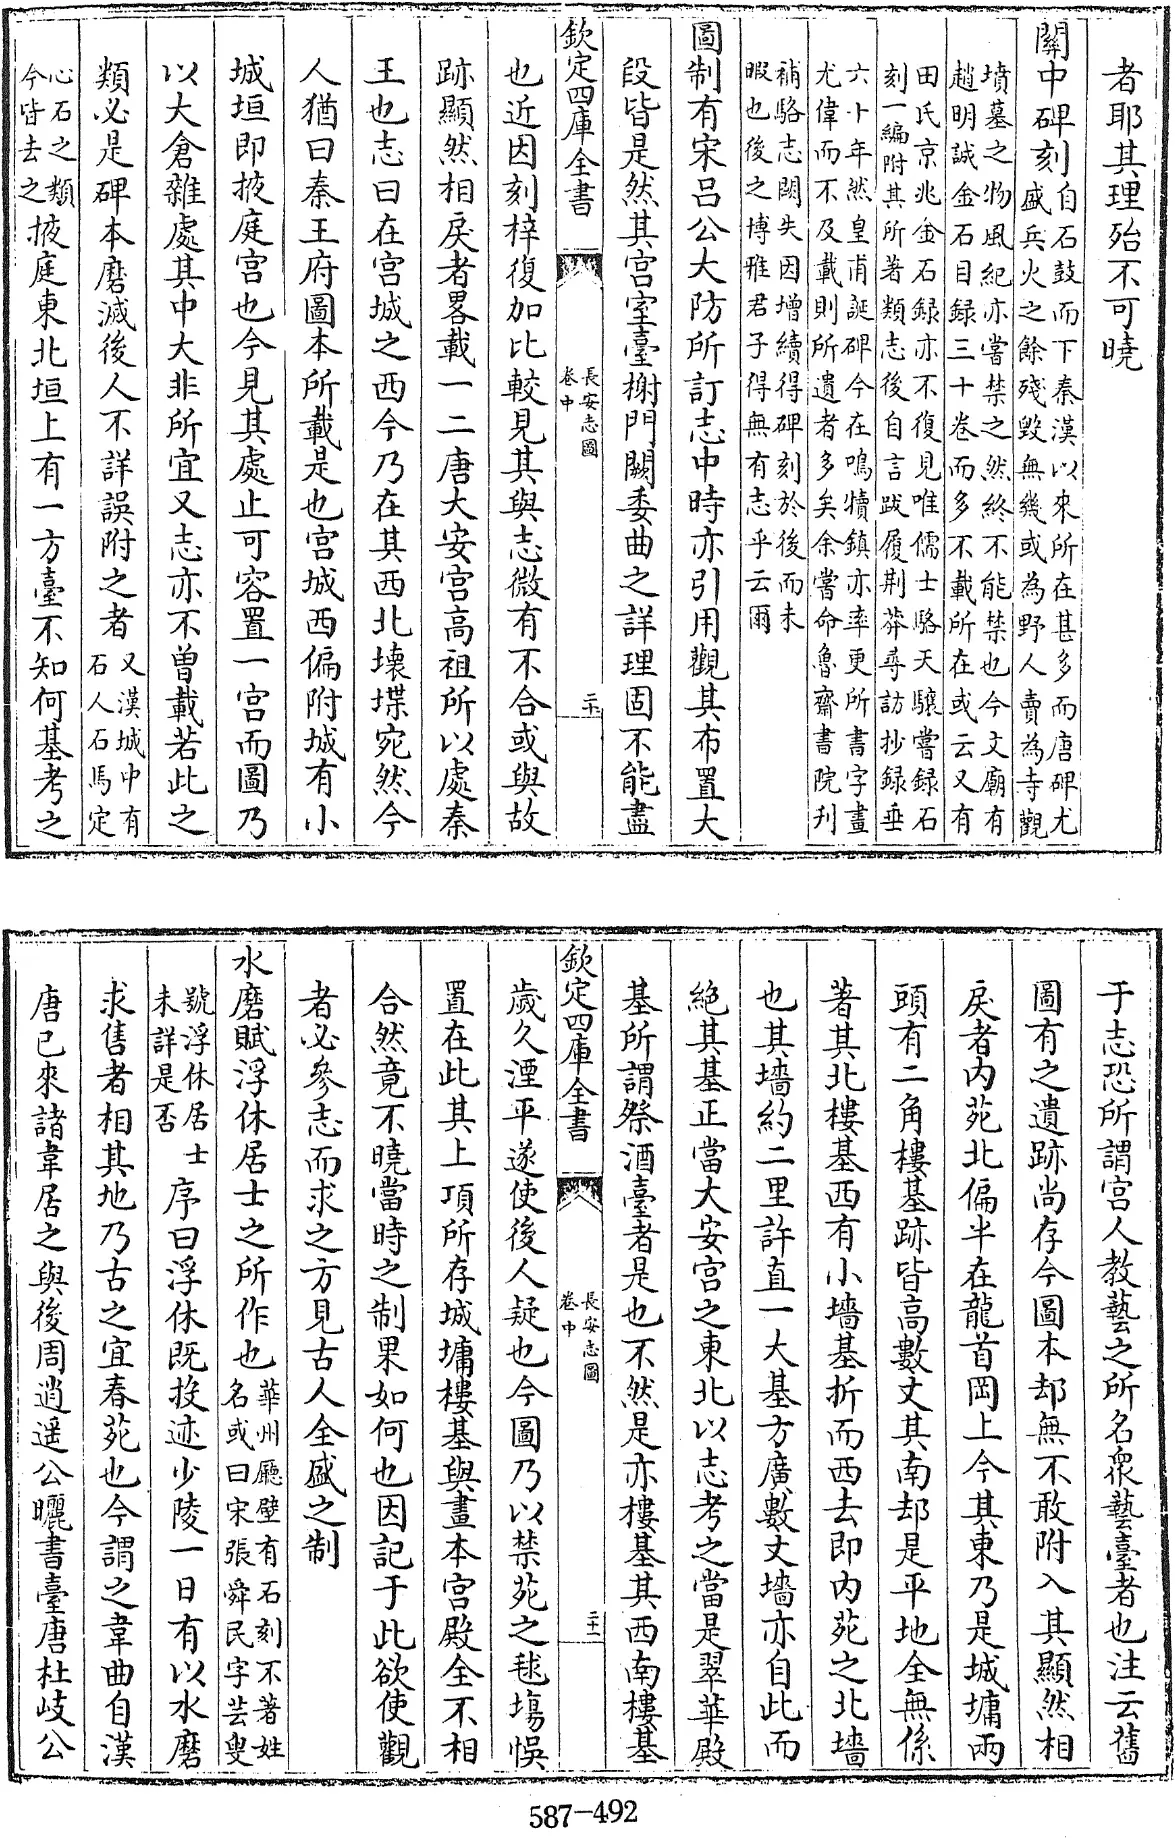 者耶其理殆不可曉
關中碑刻自石鼓而下秦漢以來所在甚多而唐碑尤
盛兵火之餘殘毀無幾或為野人賣為寺觀
墳墓之物風紀亦嘗禁之然終不能禁也今文廟有
趙明誠金石目録三十卷而多不載所在或云又有
田氏京兆金石録亦不復見唯儒士駱天驤嘗録石
刻一編附其所著類志後自言跋履荆莽尋訪抄録垂
六十年然皇甫誕碑今在鳴犢鎮亦率更所書字畫
尤偉而不及載則所遺者多矣余嘗命魯齋書院刋
補駱志闕失因增續得碑刻於後而未
暇也後之博雅君子得無有志乎云爾
圖制有宋呂公大防所訂志中時亦引用觀其布置大
段皆是然其宫室臺榭門闕委曲之詳理固不能盡
欽定四庫全書
長安志圖
卷中
二十
也近因刻梓復加比較見其與志微有不合或與故
跡顯然相戾者畧載一二唐大安宫高祖所以處秦
王也志曰在宫城之西今乃在其西北壞堞宛然今
人猶曰秦王府圖本所載是也宫城西偏附城有小
城垣即掖庭宫也今見其處止可容置一宫而圖乃
以大倉雜處其中大非所宜又志亦不曽載若此之
類必是碑本磨滅後人不詳誤附之者又漢城中有
石人石馬定
心石之類
今皆去之掖庭東北垣上有一方臺不知何基考之
于志恐所謂宫人教藝之所名衆藝臺者也注云舊
圖有之遺跡尚存今圖本却無不敢附入其顯然相
戾者内苑北偏半在龍首岡上今其東乃是城墉兩
頭有二角樓基跡皆高數丈其南却是平地全無係
著其北樓基西有小墻基折而西去即内苑之北墻
也其墻約二里許直一大基方廣數丈墻亦自此而
絶其基正當大安宫之東北以志考之當是翠華殿
基所謂祭酒臺者是也不然是亦樓基其西南樓基
欽定四庫全書
長安志圖
卷中
二十一
歲久湮平遂使後人疑也今圖乃以禁苑之毬塲悞
置在此其上項所存城墉樓基與畫本宫殿全不相
合然竟不曉當時之制果如何也因記于此欲使觀
者必參志而求之方見古人全盛之制
水磨賦浮休居士之所作也華州廳壁有石刻不著姓
名或曰宋張舜民字芸叟
號浮休居士
未詳是否序曰浮休既投迹少陵一日有以水磨
求售者相其地乃古之宜春苑也今謂之韋曲自漢
唐已來諸韋居之與後周逍遥公曬書臺唐杜岐公
587-492